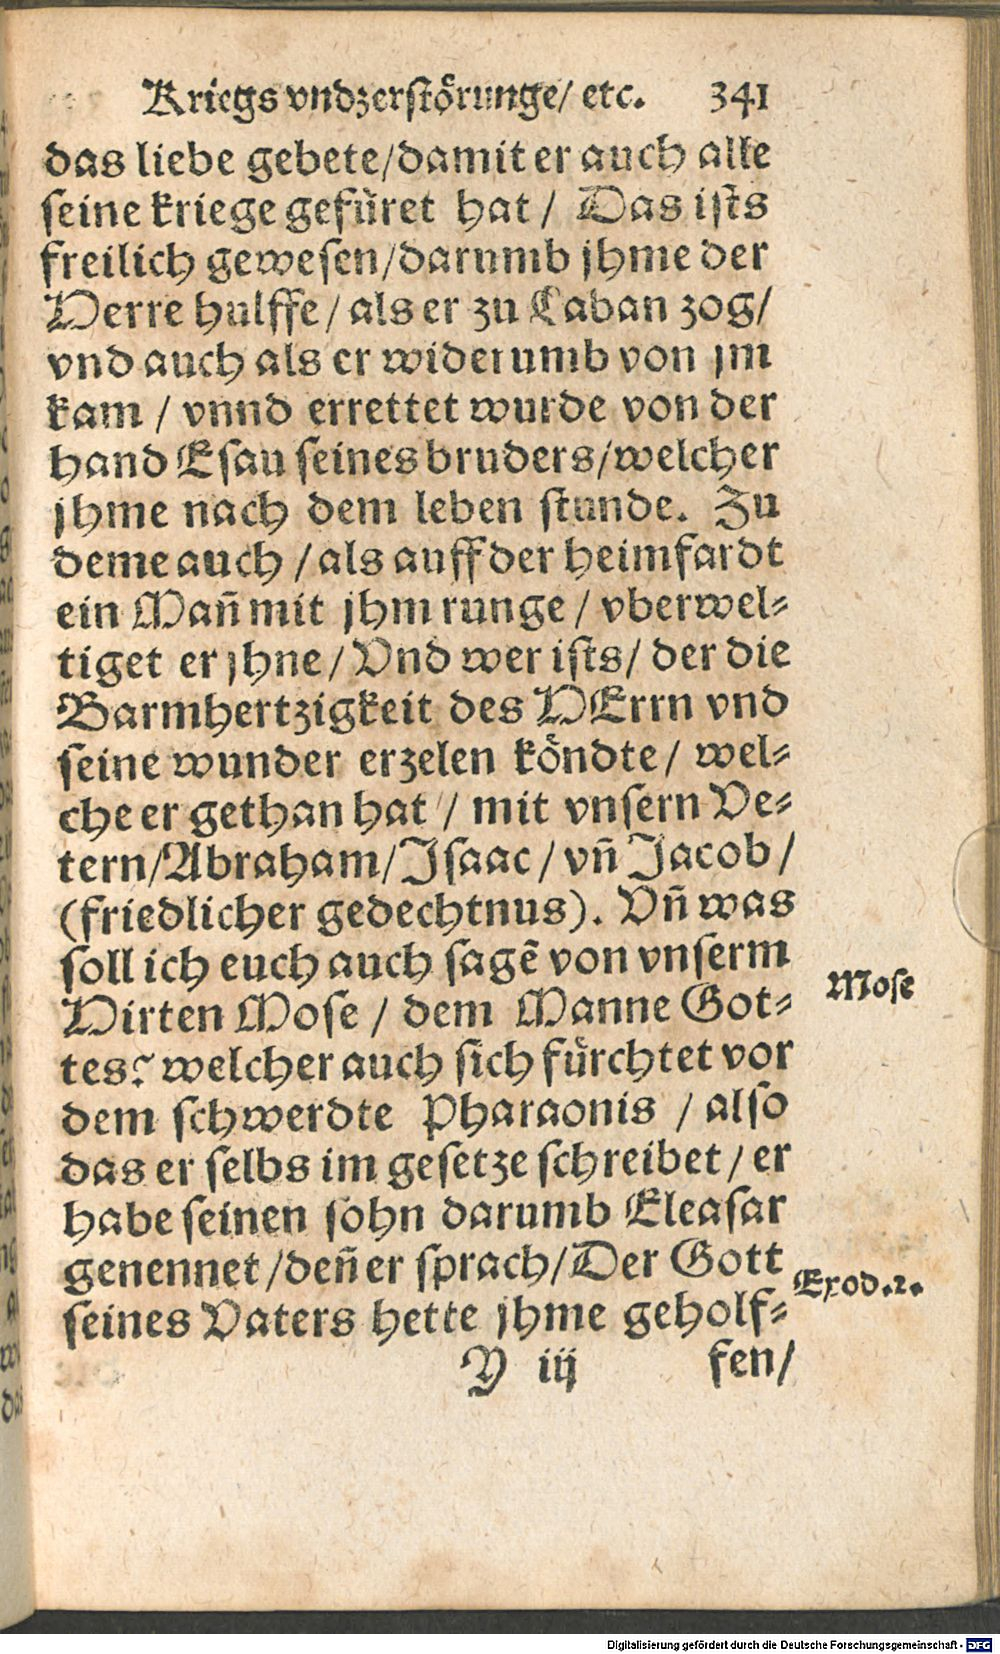 Kriegs vnd zerstörunge/ etc. 341
das liebe gebete/damit er auch alle
seine kriege gefüret hat / Das ists
freilich gewesen/darumb jhme der
Herre hulffe / als er zu Laban zog/
vnd auch als er widerumb von jm
kam / vnnd errettet wurde von der
hand Esau seines bruders/welcher
jhme nach dem leben stunde. Zu
deme auch / als auff der heimfardt
ein Mañ mit jhm runge / vberwel⸗
tiget er jhne / Vnd wer ists/ der die
Barmhertzigkeit des HErrn vnd
seine wunder erzelen köndte / wel⸗
che er gethan hat / mit vnsern Ve⸗
tern/Abraham/Isaac / vñ Jacob /
(friedlicher gedechtnus). Vñ was
soll ich euch auch sagẽ von vnserm
Hirten Mose / dem Manne Got⸗
Mose
tes? welcher auch sich fürchtet vor
dem schwerdte Pharaonis / also
das er selbs im gesetze schreibet / er
habe seinen sohn darumb Eleasar
genennet /deñ er sprach/Der Gott
Exod.2.
seines Vaters hette jhme geholf⸗
Y iij fen/
Digitalisierung gefördert durch die Deutsche Forschungsgemeinschaft - DFG